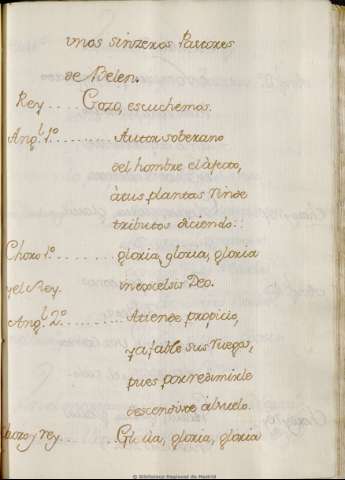 unos sinzeros Pastores
de Belen.
Rey .... Gozo, escuchemos.
Angl. 1º .......... Autor soberano
del hombre el afecto,
à tus plantas rinde
tributos diciendo::
Choro 1º ........ gloria, gloria, gloria
y el Rey. inexcelsis Deo.
Angl. 2º .......... Atiende propicio,
y afable sus ruegos,
pues por redimirle
descendiste al suelo.
Choro y rey .... Gloria, gloria, gloria
© Biblioteca Regional de Madrid